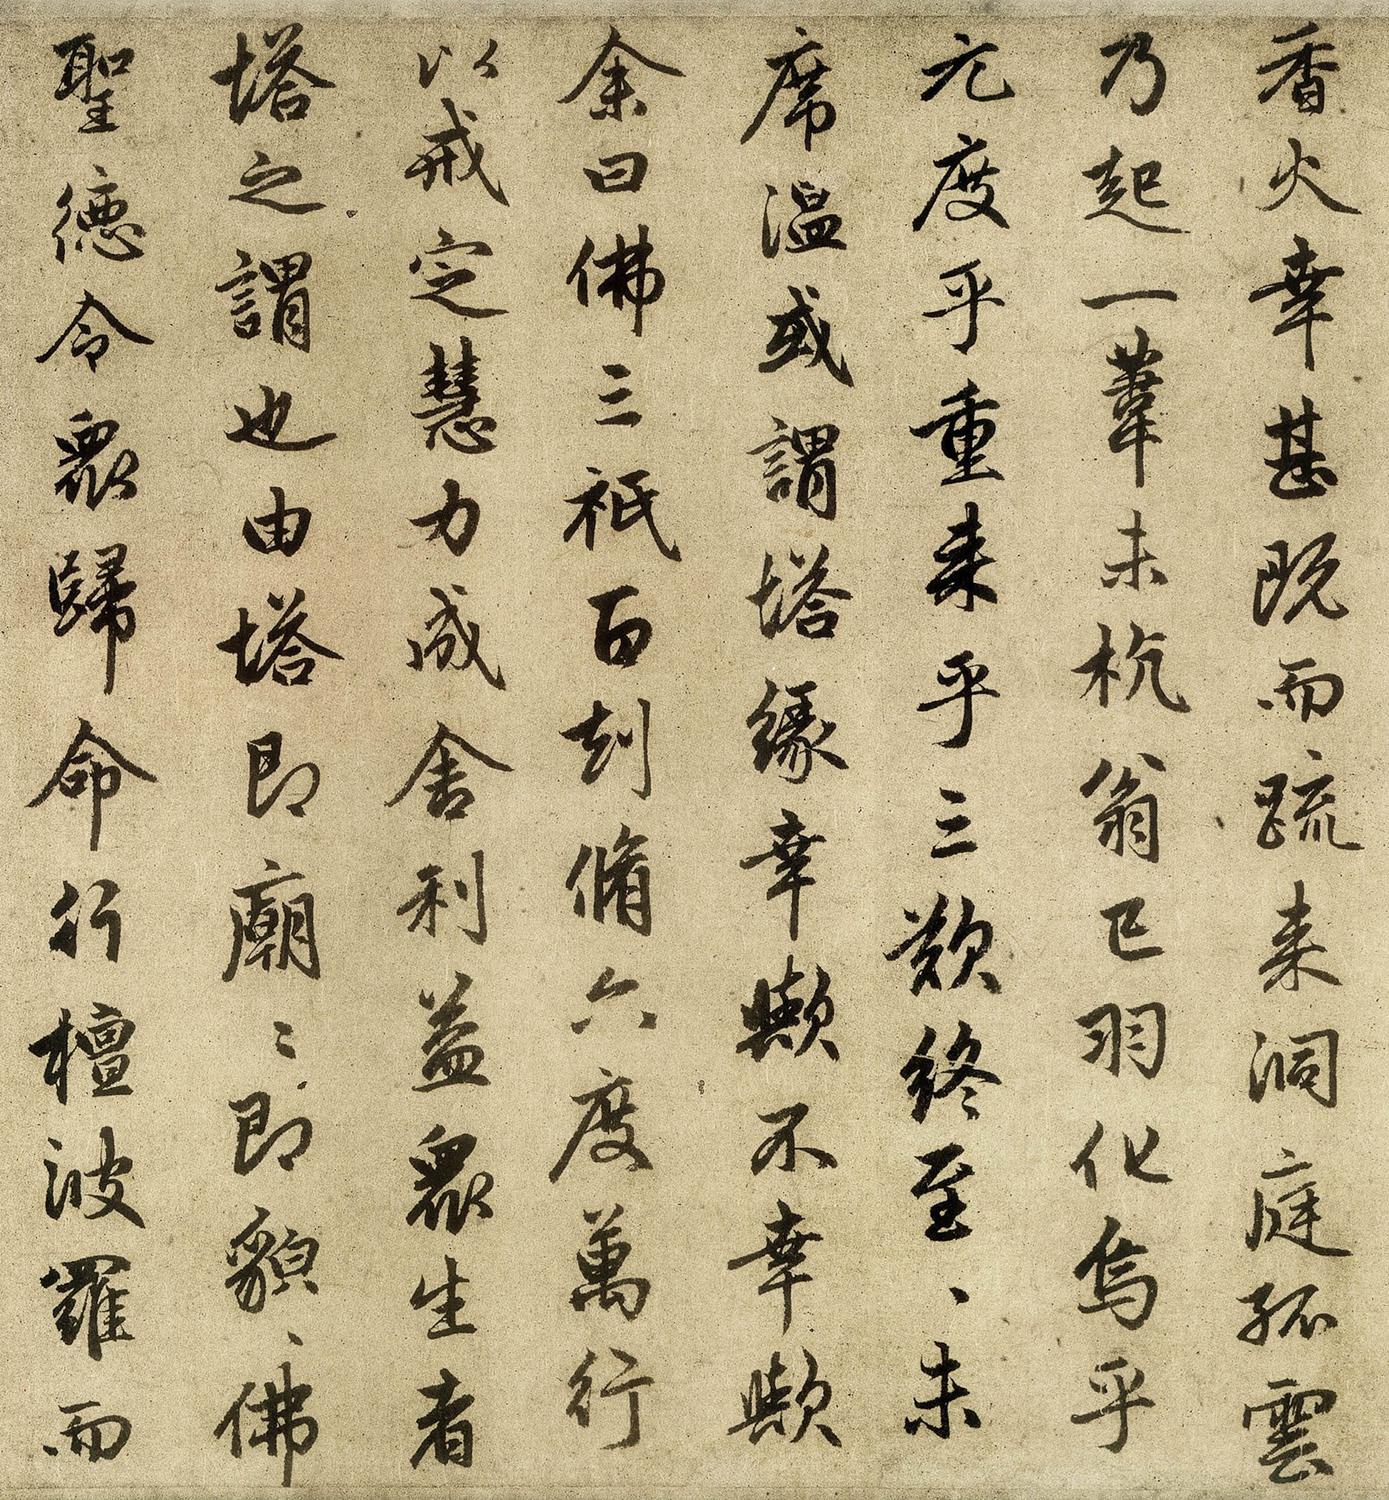 香火幸甚既而疏来洞庭孤雲
乃起一葦未杭翁已羽化烏乎
元度乎重来乎三歎終至、未
席溫或謂塔緣幸歟不幸歟
余曰佛三祇百刼脩六度萬行
以戒定慧力成舍利益眾生者
塔之謂也由塔即廟〻即貌、佛
聖德令眾歸命行檀波羅而